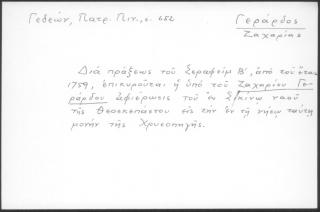 Γεδεών, Πατρ. Πιν., σ. 652
Γεράρδος
Ζαχαρίας
Διά πράξεως τοῦ Σεραφείμ Β', ἀπό τοῦ ἔτους
1759, ἐπικυροῦται ἡ ὑπό τοῦ Ζαχαρίου Γε-
ράρδου ἀφιέρωσις τοῦ ἐν Σικίνῳ ναοῦ
τῆς Θεοσκεπάστου εἰς τήν ἐν τῇ νήσῳ ταύτῃ
μονήν τῆς Χρυσοπηγῆς.